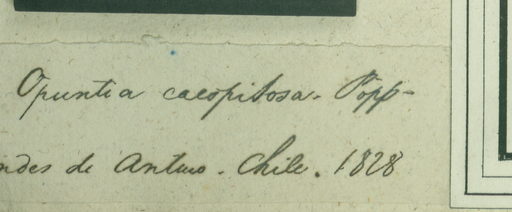 Opuntia caespitosa. Popp-
ndes de Antuco. Chile. 1828